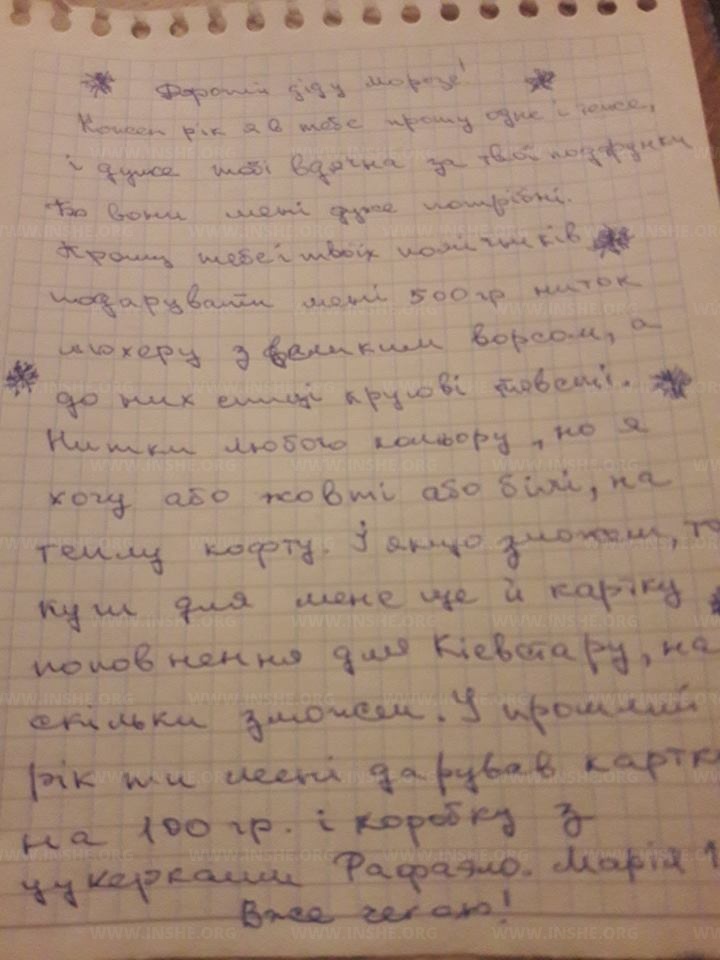 Дорогий діду морозе!
Кожен рік я в тебе прошу одне і теже,
і дуже тобі вдячна за твої подарунки
Бо вони мені дуже потрібні.
Прошу тебе і твоїх помічників
подарувати мені 500 гр ниток
мохеру з великим ворсом, а
до них спиці кругові товсті.
Нитки любого кольору, но я
хочу або жовті або білі, на
теплу кофту. І якщо зможеш, то
куш для мене ще й картку
поповнення для Кієвстару, на
скільки зможеш. У прошлий
рік ти мені дарував картку
на 100 гр. і коробку з
цукерками Рафаэло. Марія
Вже чекаю!
WWW.INSHE.ORG